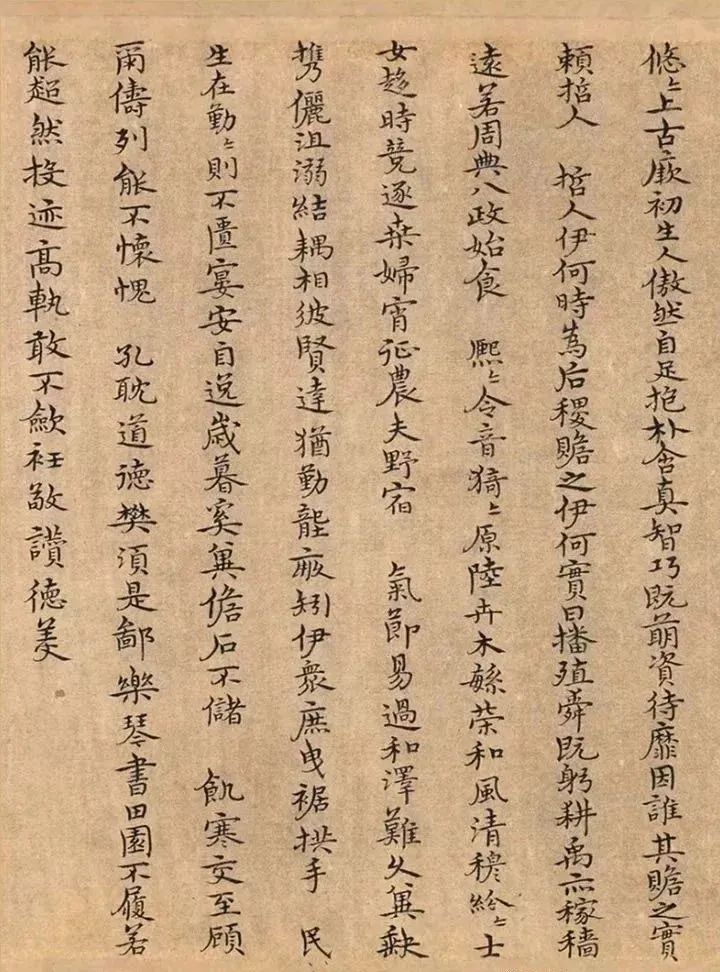 悠〻上古厥初生人傲然自足抱朴含真智巧既萌資待靡因誰其贍之實
賴哲人 哲人伊何時為后稷贍之伊何實曰播殖舜既躬耕禹亦稼穡
遠若周典八政始食 熙〻令音猗〻原陸卉木繁榮和風清穆紛〻士
女趍時競逐桒婦宵征農夫野宿 氣節易過和澤難久冀缺
携儷沮溺結耦相彼賢達猶勤壟畝矧伊衆庶曳裾拱手 民
生在勤〻則不匱宴安自逸歲暮奚冀儋石不儲 飢寒交至顧
爾儔列能不懷愧 孔耽道德樊須是鄙樂琴書田園不履若
能超然投迹高軌敢不歛衽敬讚德美